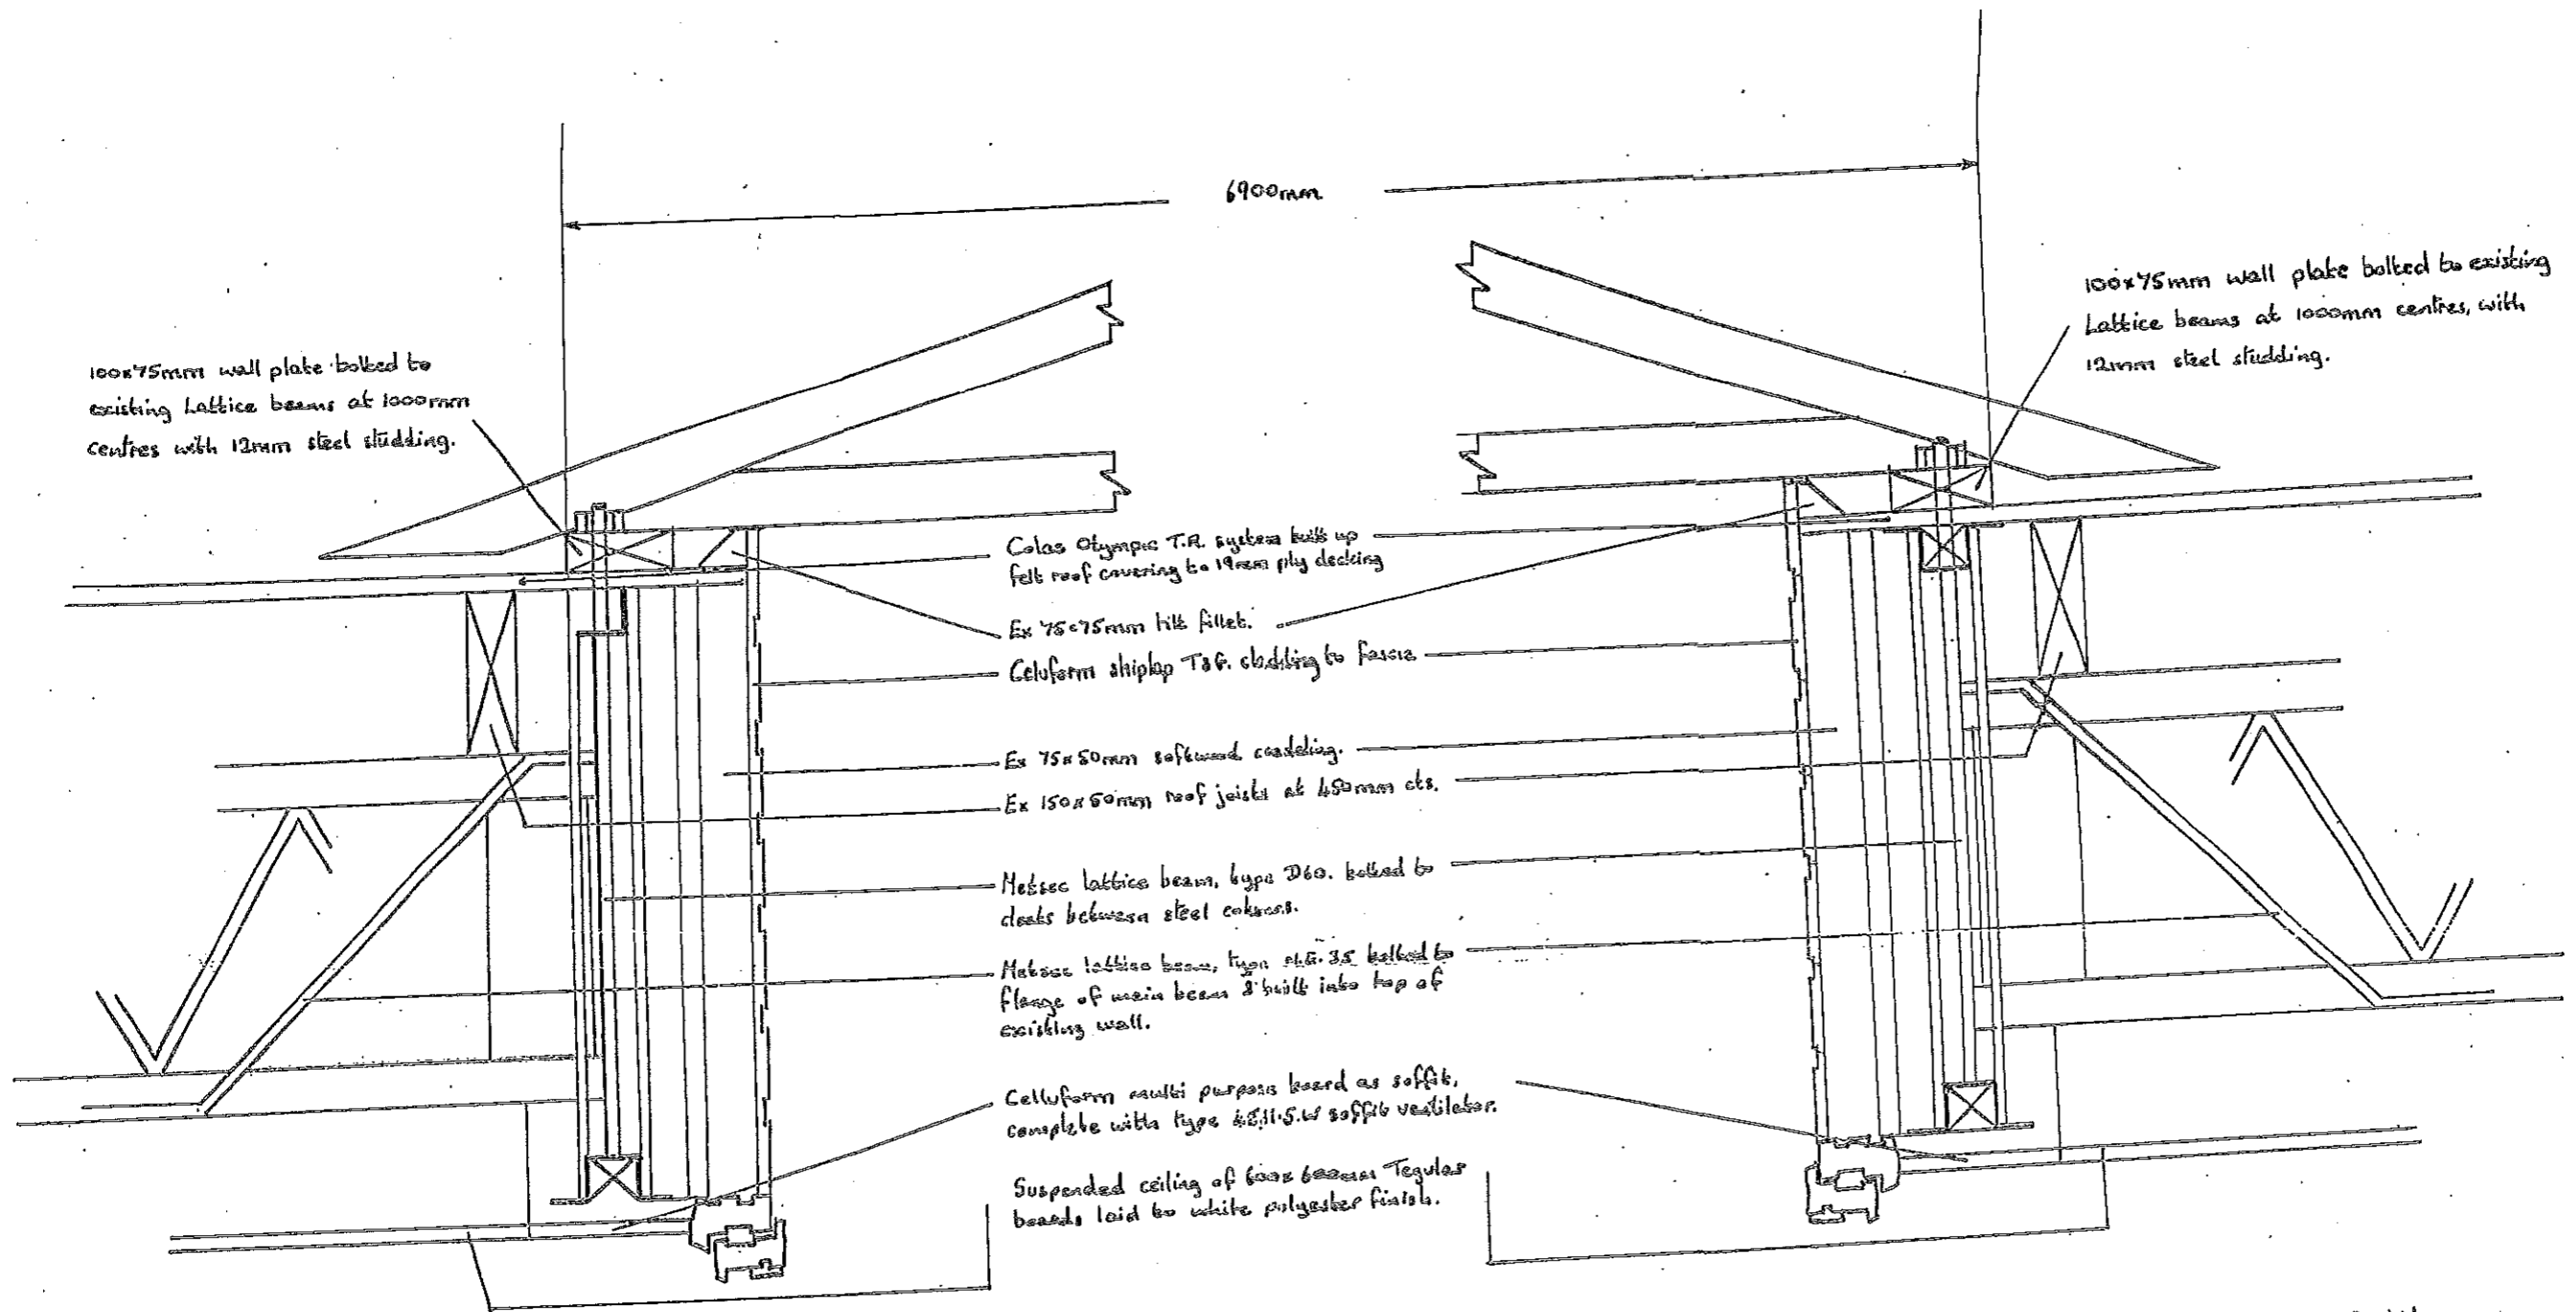 6900mm.
100x75mm wall plate bolted to
existing Lattice beams at 1000mm
centres with 12mm steel studding.
100x75mm wall plate bolted to existing
Lattice beams at 1000mm centres, with
12mm steel studding.
Colas Olympic T.R. system built up
felt roof covering to 19mm ply decking
Ex 75x75mm tilt fillet.
Celuform shiplap T&G. cladding to fascia
Ex 75x50mm softwood
Ex 150x50mm roof joists at 450mm cts.
Metsec lattice beam, type D60. bolted to
cleats between steel columns.
Metsec lattice beam, type bolted to
flange of main beam & built into top of
existing wall.
Celluform multi purpose board as soffit,
complete with type soffit ventilator.
Suspended ceiling of 600x600mm Tegular
boards laid to white polyester finish.